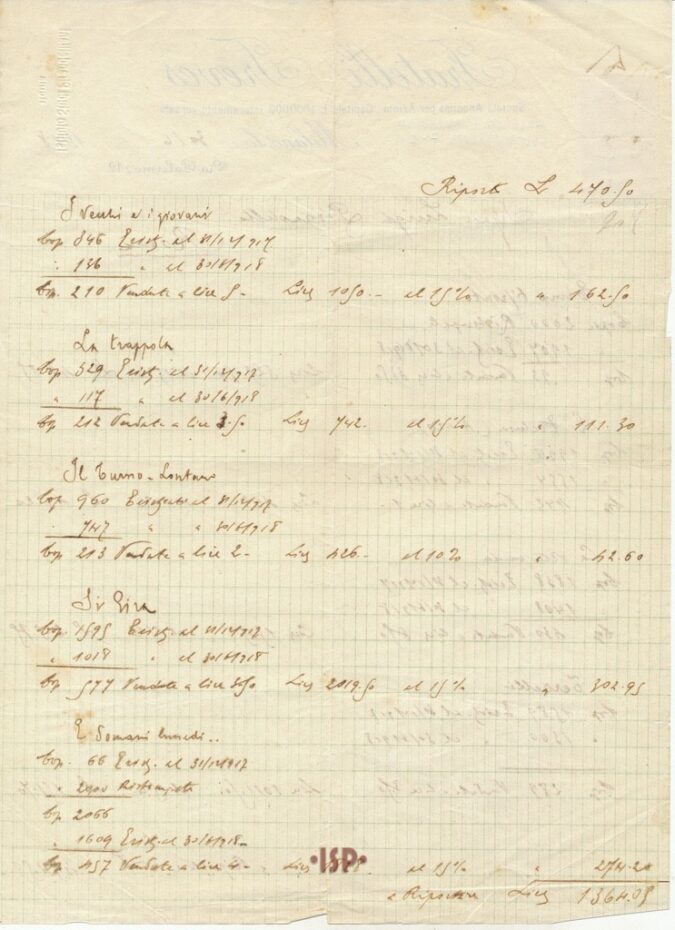 Riporto L. 470.50
I vecchi e i giovani
Cop. 346 Esist. al 31/12/917
" 136 " al 30/6/918
Cop. 210 Vendute a lire 5- Lire 1050.- al 15% " 162.50
La trappola
Cop. 329 Esist. al 31/12/917
" 117 " al 30/6/918
Cop. 212 Vendute a lire 3.50 Lire 742.- al 15% " 111.30
Il turno - Lontano
Cop. 960 Esistenti al 31/12/917
" 747 " " 30/6/918
Cop. 213 Vendute a lire 2- Lire 426.- al 10% " 42.60
Si Gira
Cop. 1595 Esist. al 31/12/917
" 1018 " al 30/6/918
Cop. 577 Vendute a lire 3.50 Lire 2019.50 al 15% " 302.95
E Domani lunedi..
Cop. 66 Esist. al 31/12/917
" 2000 Ristampate
Cop. 2066
" 1609 Esist. al 30/6/918-
Cop. 457 Vendute a lire 4- Lire al 15% " 274.20
•ISP•
a Riportare Lire 1364.05